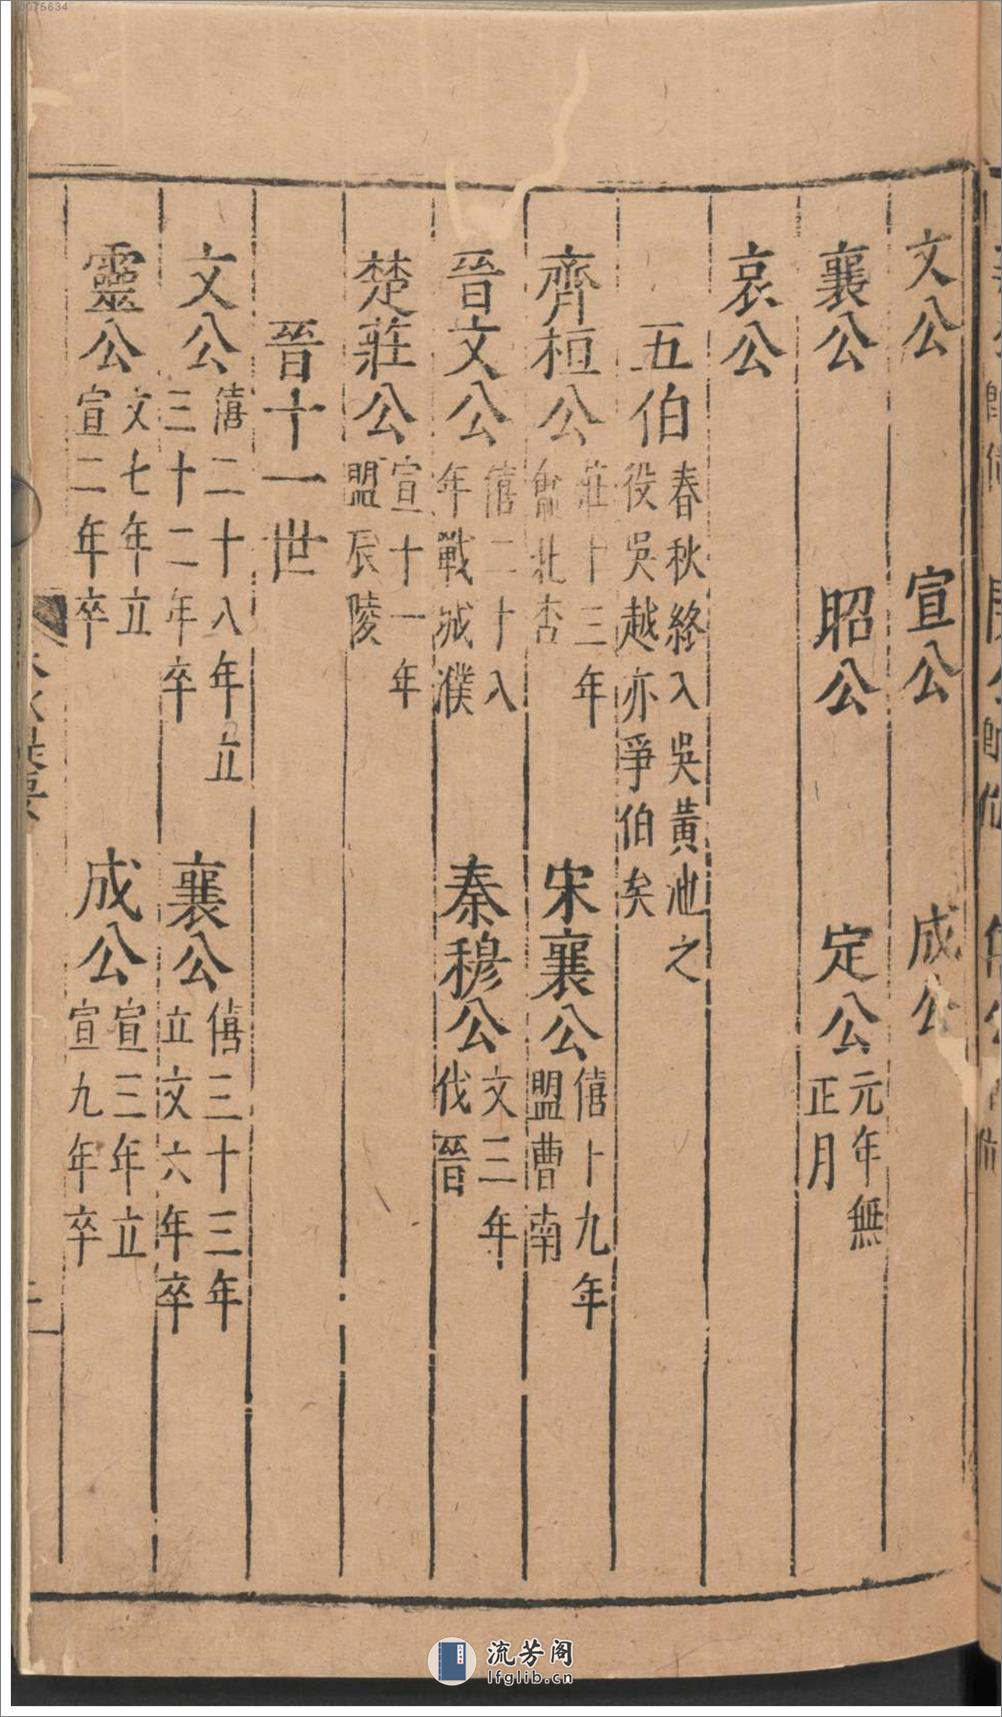 文公 宣公 成公
襄公 昭公 定公 元年無正月
哀公
五伯 春秋終入吳黃池之役吳越亦爭伯矣
齊桓公 莊十三年會北杏 宋襄公 僖十九年盟曹南
晉文公 僖二十八年戰城濮 秦穆公 文三年伐晉
楚莊公 宣十一年盟辰陵
晉十一世
文公 僖二十八年立三十二年卒 襄公 僖三十三年立文六年卒
靈公 文七年立宣二年卒 成公 宣三年立宣九年卒
流芳阁
lfglib.cn